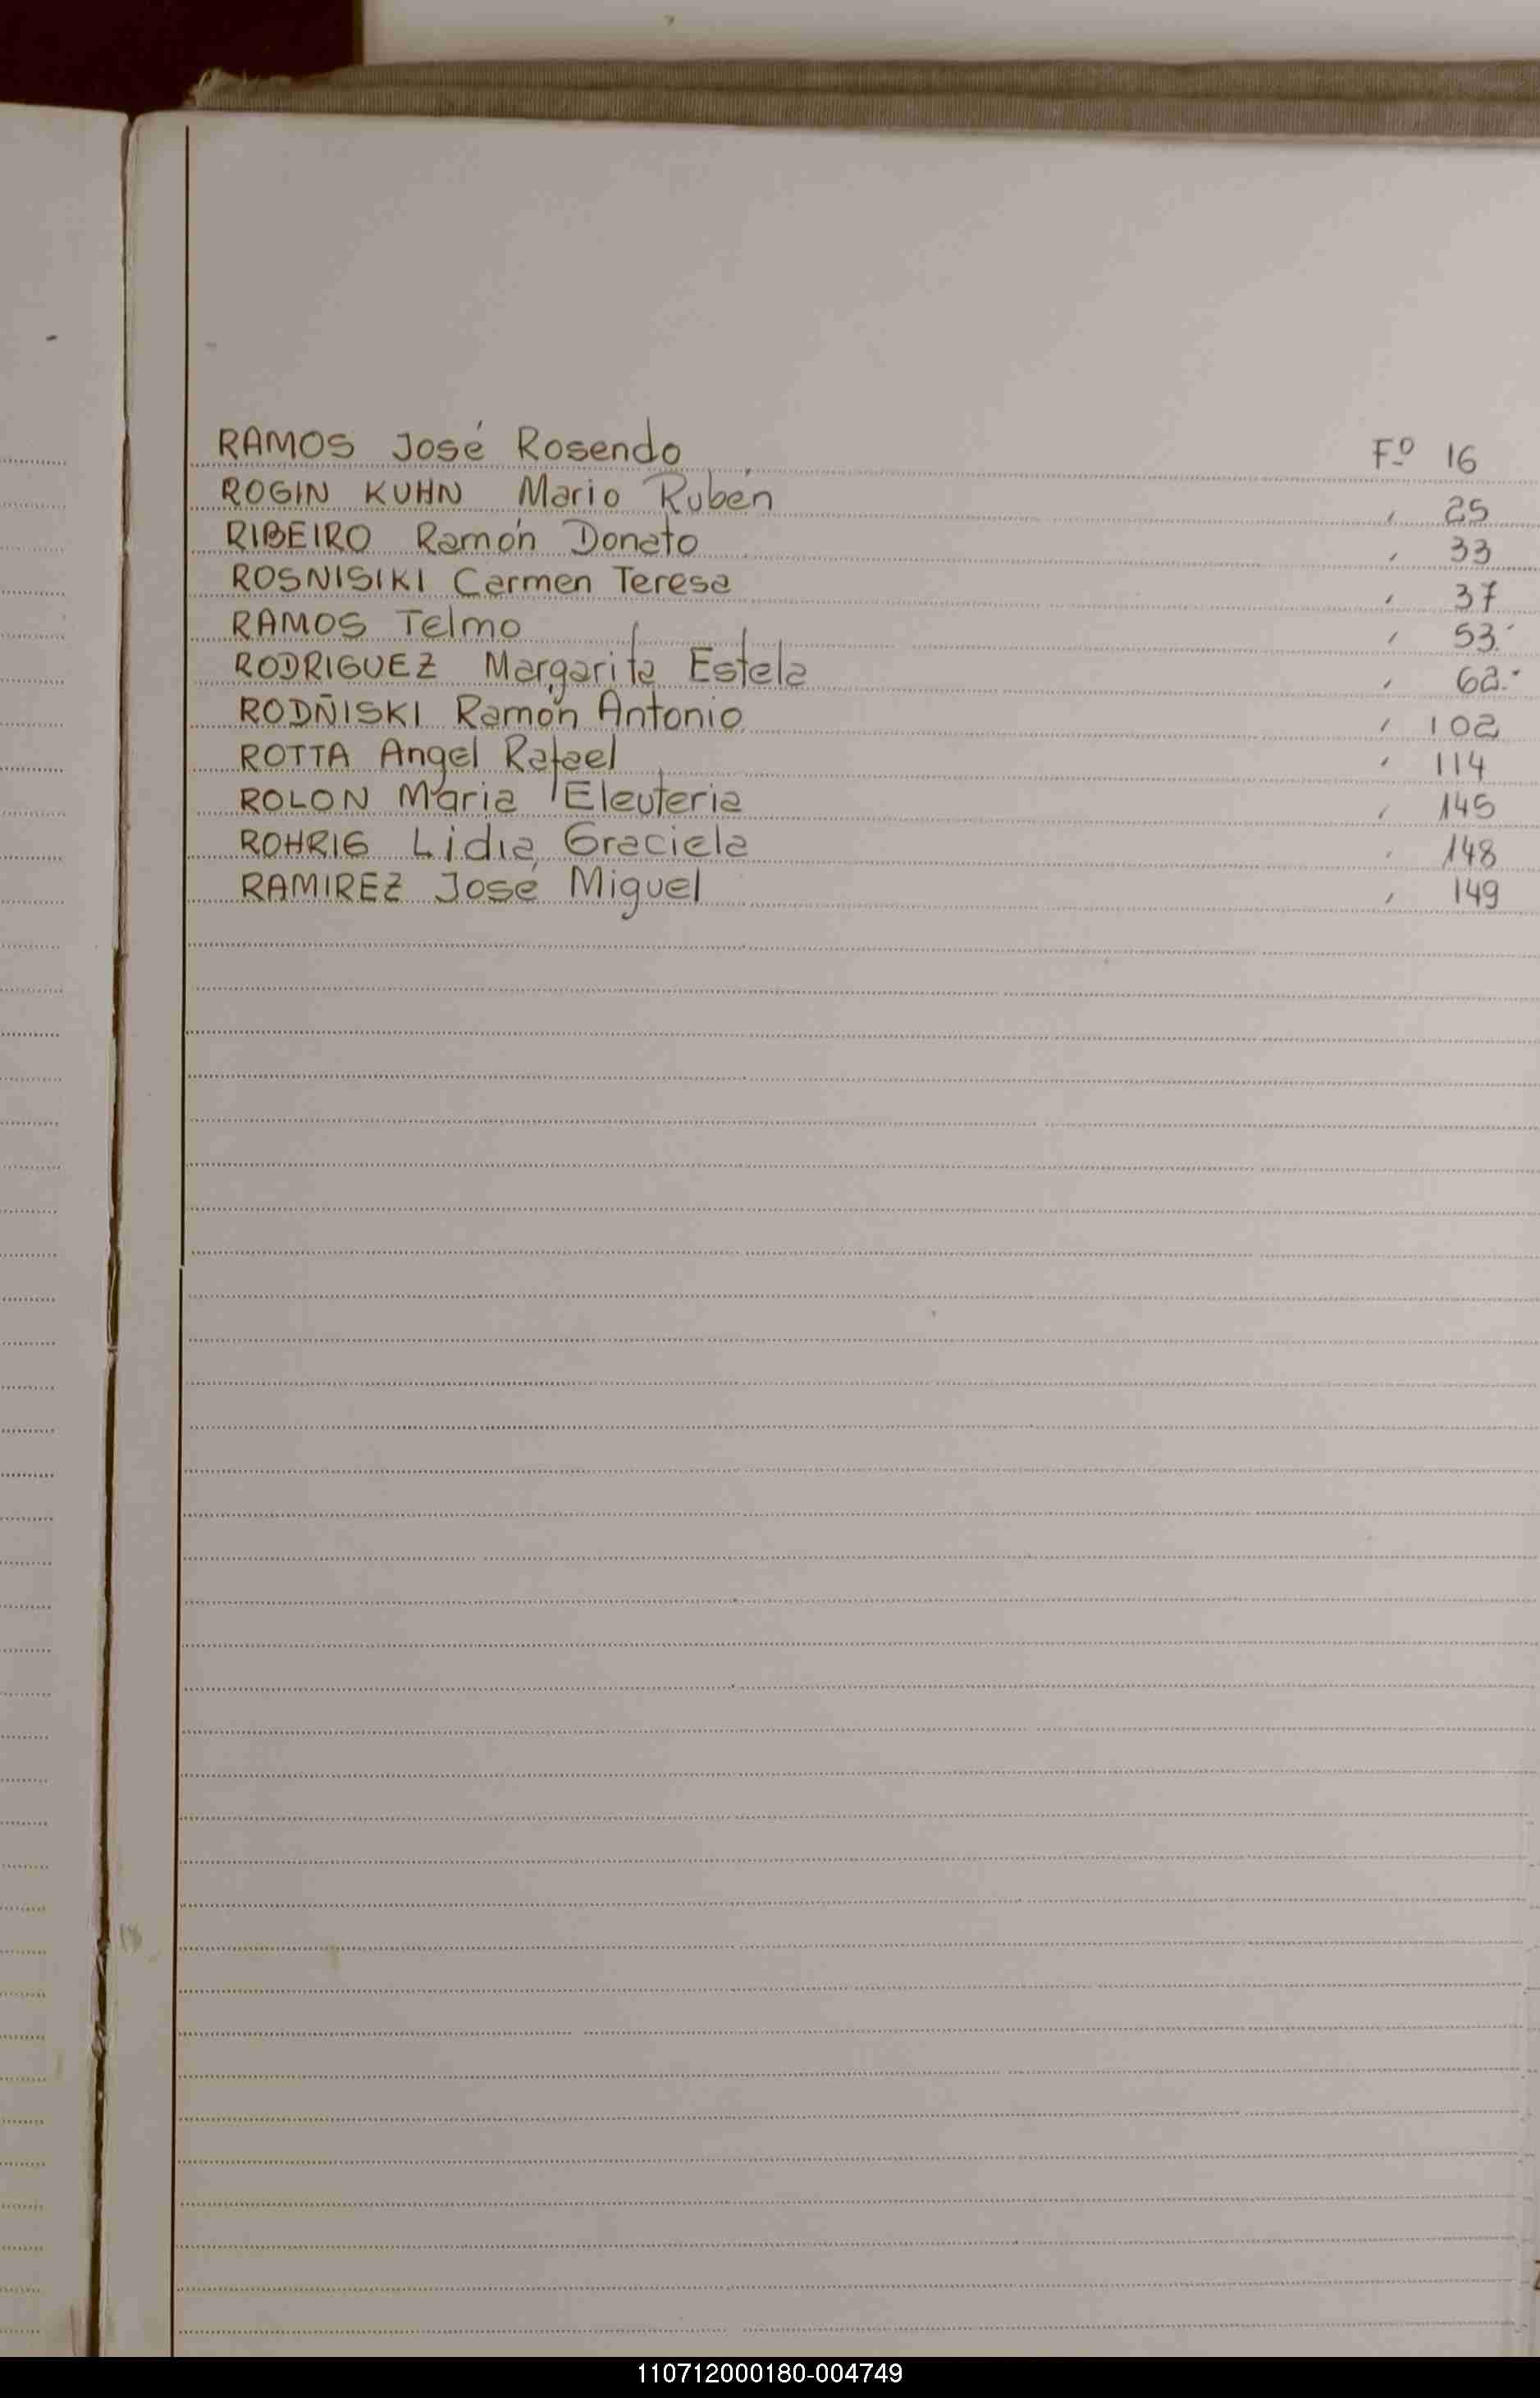 RAMOS José Rosendo Fº 16
ROGIN KUHN Mario Rubén , 25
RIBEIRO Ramón Donato , 33
ROSNISIKI Carmen Teresa , 37
RAMOS Telmo , 53.
RODRIGUEZ Margarita Estela , 62.-
RODÑISKI Ramón Antonio , 102
ROTTA Angel Rafael , 114
ROLON Maria Eleuteria , 145
ROHRIG Lidia Graciela , 148
RAMIREZ José Miguel , 149
110712000180-004749